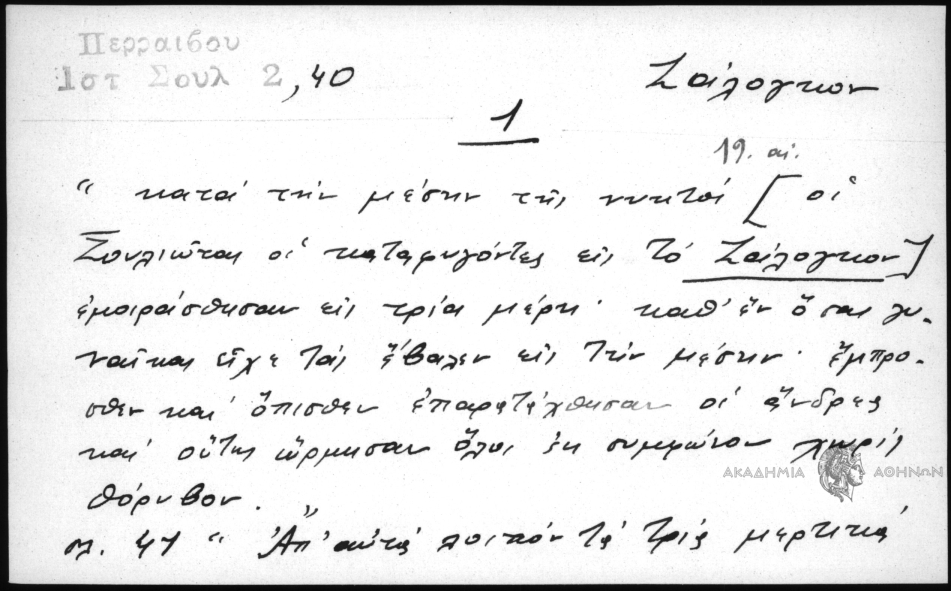 Περραιβου
Ιστ Σουλ 2,40
Ζάλογκον
1
19. αἰ.
“ κατά τήν μέσην τῆς νυκτός [ οἱ
Σουλιῶται οἱ καταφυγόντες εἰς τό Ζάλογκον]
ἐμοιράσθησαν εἰς τρία μέρη· καθ' ἕν ὅσας γυ-
ναῖκας εἶχε τάς ἔβαλεν εἰς τήν μέσην· ἔμπρο-
σθεν καί ὄπισθεν ἐπαρετάχθησαν οἱ ἄνδρες
καί οὕτως ὥρμησαν ὅλοι ἐκ συμφώνου χωρίς
θόρυβον. ”
σλ. 41 “ Ἀπ' αὐτά λοιπόν τά τρία μερτικά
ΑΚΑΔΗΜΙΑ ΑΘΗΝΩΝ